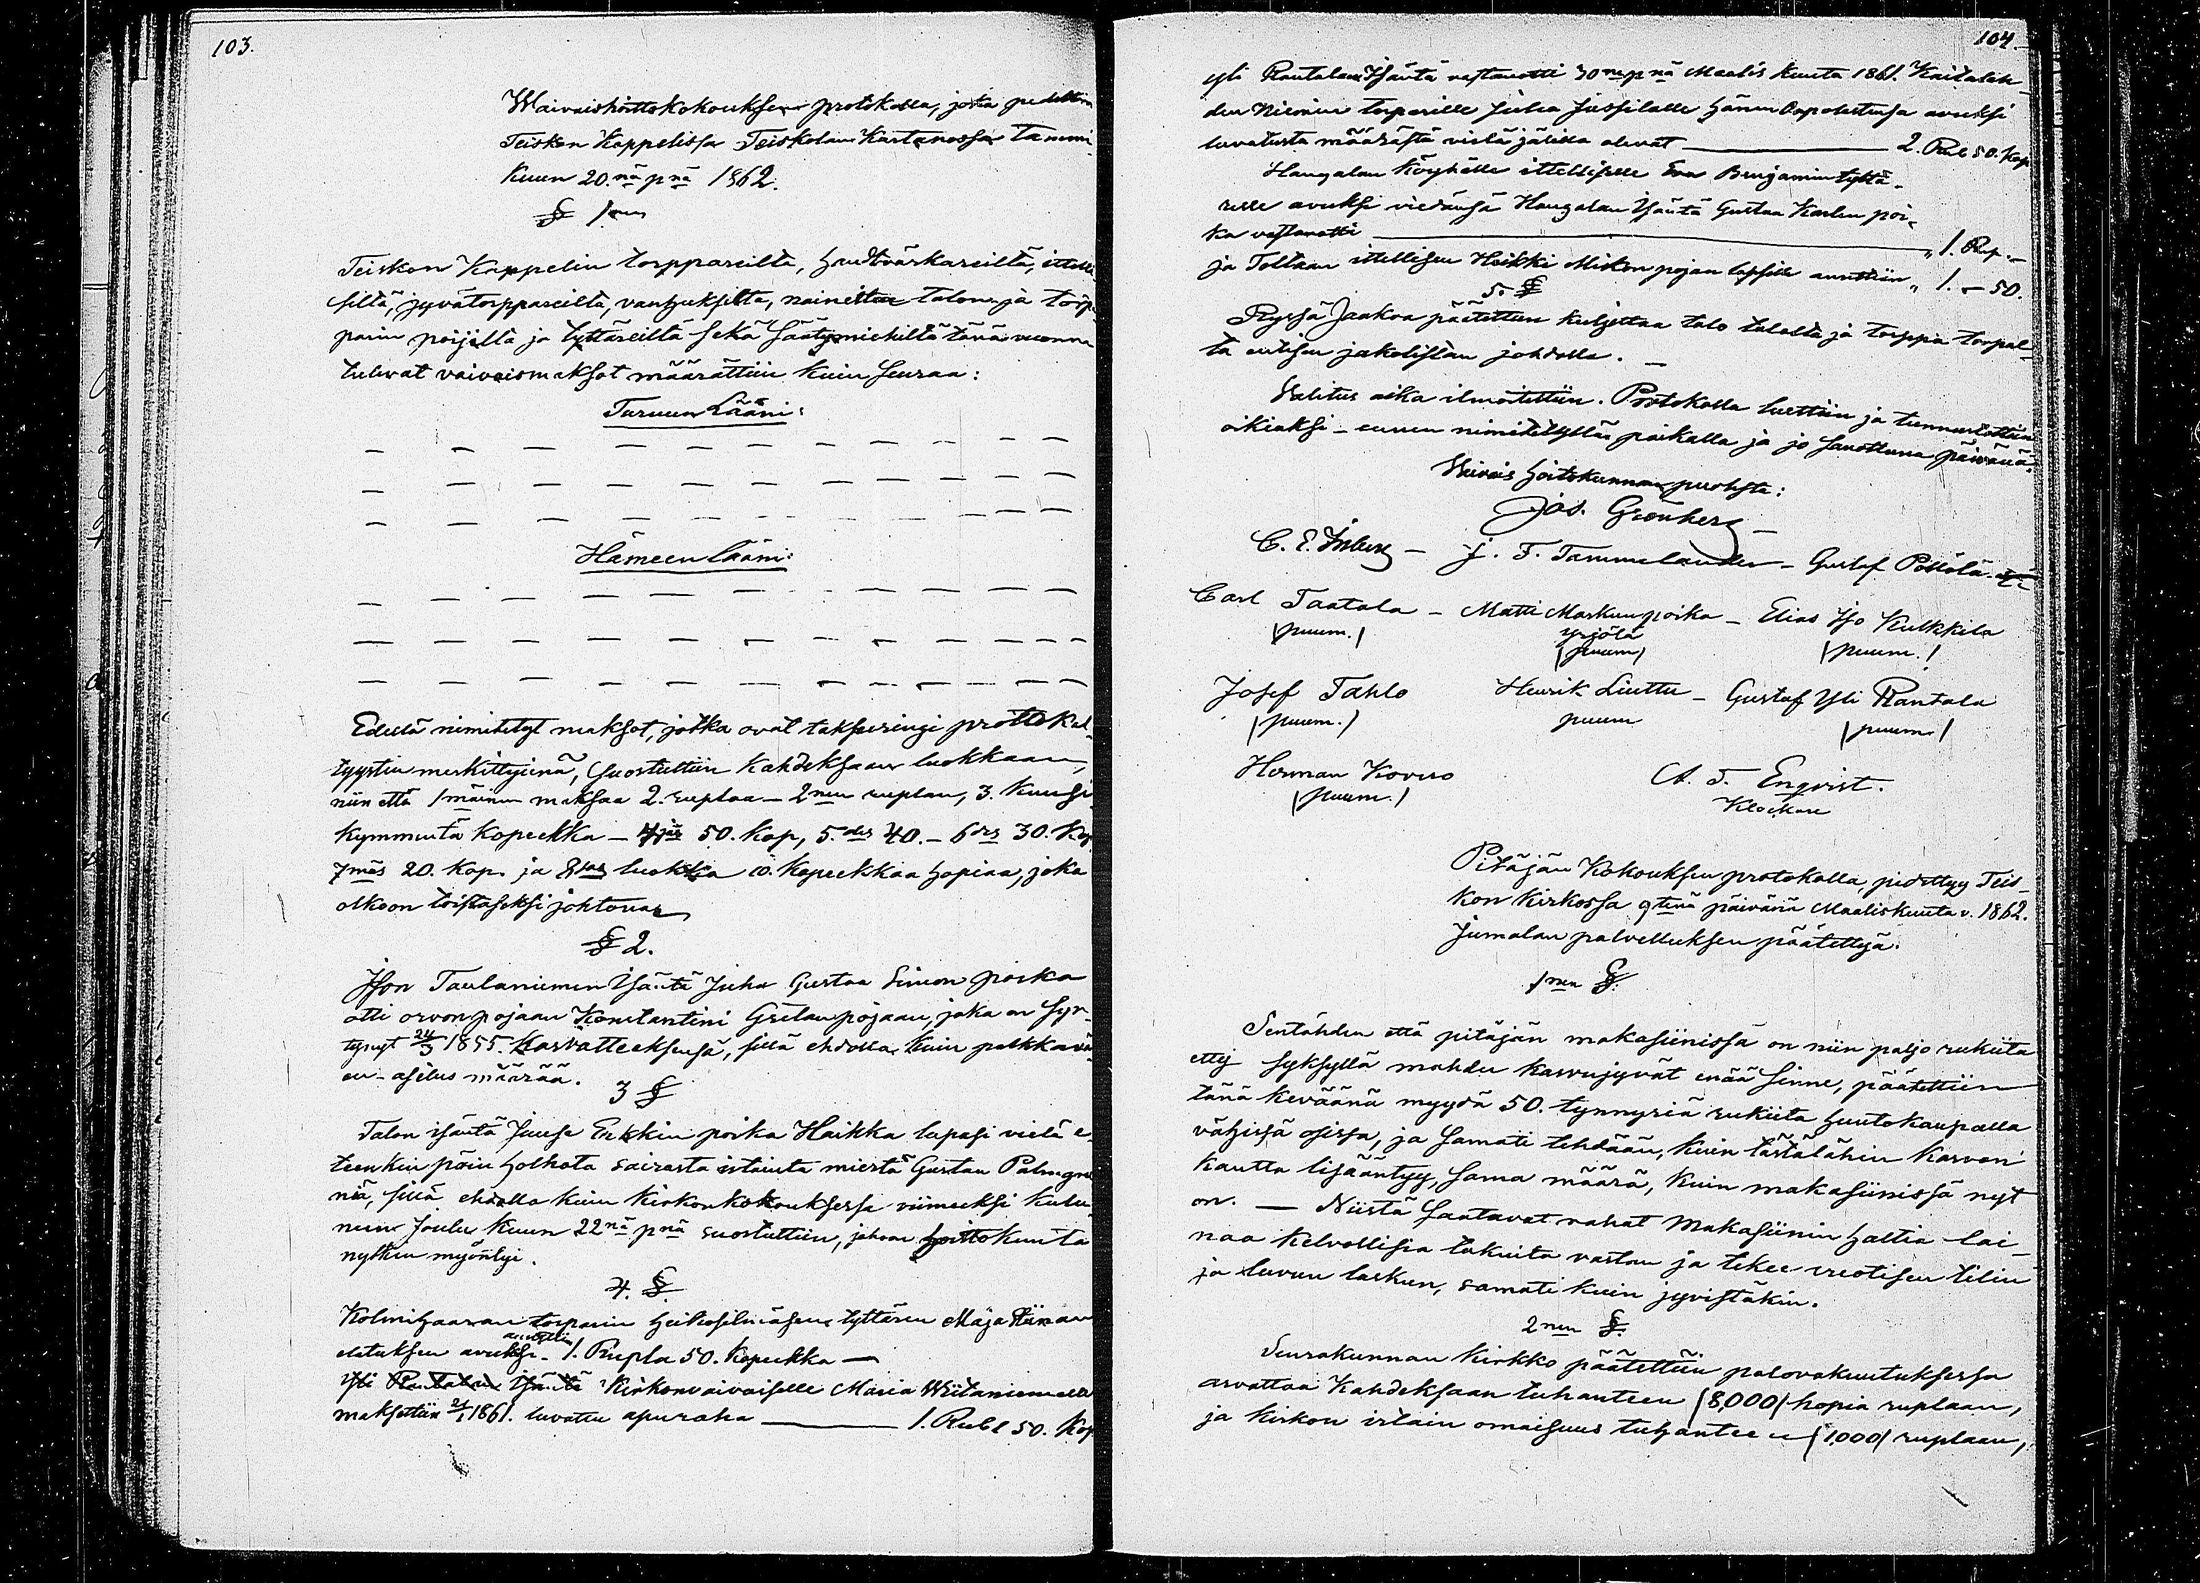 103.
Waivaishoittokokouksen protokolla, joka pidettiin
Teiskon Kappelissa Teiskolan Kartanossa Tammi-
Kuun 20.nä pnä 1862.
§ 1 nen
Teiskon Kappelin torppareilta, handtvärkareilta, ittelli-
siltä, jyvätorppareilta, vanhuksilta, naineitten talon ja torp-
parin poijilta ja tyttäreiltä sekä säätymiehiltä tänä vuonna
tulevat vaivaismaksot määrättiin kuin seuraa:
Turuun Lääni:
Hämeen Lääni:
Edellä nimitetyt maksot, jotka ovat taksseringi prottokol-
tyystin merkittyinä, suostuttiin kahdeksaan luokkaan,
niin että 1 mäinen maksaa 2. ruplaa - 2 nen ruplan, 3. Kuusi
kymmentä kopeekka - 4 jäs 50. kop, 5.des 40. - 6 des 30. Kop
7 mäs 20. kop. ja 8 sas luokka 10. kopeekkaa hopiaa, joka
olkoon toistaseksi johtona.
§ 2.
Ison Taulaniemen Isäntä Juha Gustaa Simon poika
otti orvon pojaan Konstantini Gretan pojaan, joka on syn-
tynyt 24/3 1855. Kasvatteeksensa, sillä ehdolla kuin palkkavä-
en-asetus määrää.
3 §
Talon isäntä Juuse Erkkin poika Haikka lupasi vielä e-
teenkin päin holhota sairasta istainta miestä Gustau Palmgre-
niä, sillä ehdolla kuin Kirkonkokouksessa viimeeksi kulu-
neen Joulu Kuun 22 nä pnä suostuttiin, johon hoittokunta
nytkin myöntyi.
4. §
Kolmihaaran torparin tyttären Maja Riinan
elatuksen avuksi annettiin - 1. Rupla 50. Kopeekka —
Yli Rantalan Isäntä Kirkonvaivaiselle Maria Wiitaniemelle
maksettiin 21/1 1861. luvattu apuraha — 1. Rubl 50. Kop
104.
yli Rantalan Isäntä vastanotti 30 ne pnä Maalis kuuta 1861. Kaitalah-
den Niemin torparille Juha Jussilalle hänen Oopoletensa avuksi
luvatusta määrästä vielä jälillä olevat — 2. Rub 50. Kop
Haugalan Köyhälle ittelliselle Eva Benjamintyttä-
relle avuksi viedänsä Haugalan Isäntä Gustaa Karlen poi-
ka vastanotti — „ 1. Rup. —
ja Tollaan ittellisen Heikki Mikon pojan lapsille annettiin „ 1. - 50.
5. §
Ryssä Jaakoa päätettiin kuljettaa talo talolta ja torppa torpal-
ta entisen jakolistan johdolla. —
Walitus aika ilmoitettiin. Protokolla luettiin ja tunnustettiin
oikiaksi - ennen nimitetyllä paikalla ja jo sanottuna päivänä.
Waivais hoitokunnan puolesta:
Jos. Grönberg -
C. E. Inberg - J. F. Tammelander - Gustaf Pöllölä
Carl Taatala - Matti Markun poika - Elias Iso Kulkkila
/puum./ Yrjölä /puum/ /puum./
Josef Tahlo Henrik Liuttu - Gustaf Yli Rantala
/puum./ puum /puum./
Herman Kovero A. T. Enqvist.
/puum./ Klockare
Pitäjän Kokouksen protokolla, pidettyy Teis-
kon Kirkossa 9 tenä päivänä Maaliskuuta v. 1862.
Jumalan palvelluksen päätettyä.
1 nen §.
Sentähden että pitäjän makasiinissä on niin paljo rukiita
etty syksyllä mahdu kasvujyvät enää sinne, päätettiin
tänä keväänä myydä 50. tynnyriä rukiita huutokaupalla
vähissä osissa, ja samati tehdään, kuin tästälähin kasvon
kautta lisääntyy, sama määrä, kuin makasiinissä nyt
on. — Niistä saatavat rahat Makasiinin haltia lai-
naa kelvollisia takuita vastan ja tekee vuotisen tilin
ja luvun laskun, samati kuin jyvistäkin.
2 nen §.
Seurakunnan kirkko päätettiin palovakuutuksessa
arvattaa Kahdeksaan tuhanteen /8,000/ hopia ruplaan,
ja kirkon irtain omaisuus tuhantee n /1,000/ ruplaan,